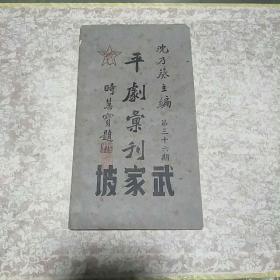 沈乃葵主編
平劇彙刊
第三十六期
時慧寶題
武家坡